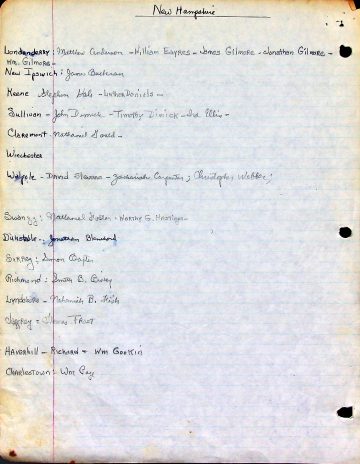 New Hampshire
Londonderry: Matthew Anderson - William Eayres - James Gilmore - Jonathan Gilmore -
Wm. Gilmore -
New Ipswich: James
Keene Stephen - Luther Daniels -
Sullivan - John Dimick - Timothy Dimick - Ellis -
Claremont - Nathaniel Gould -
Winchester
Walpole - David Stevens - Zachariah Carpenter; Christopher Webber;
Swanzy: Nathaniel - Worthy G.
Dunstable: Jonathan Blanchard
Surry: Simon
Richmond: Smith B.
Lyndeboro - Nehemiah B.
Jaffrey: Frost
Haverhill - Richard + Wm Goskin
Charlestown: Wm